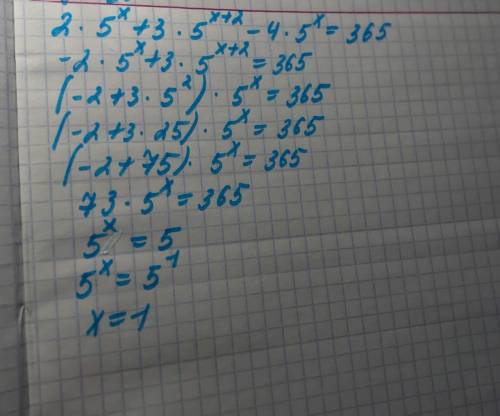 2 · 5^x + 3 · 5^{x+2} - 4 · 5^x = 365
-2 · 5^x + 3 · 5^{x+2} = 365
(-2 + 3 · 5^2) · 5^x = 365
(-2 + 3 · 25) · 5^x = 365
(-2 + 75) · 5^x = 365
73 · 5^x = 365
5^x = 5
5^x = 5^1
x = 1